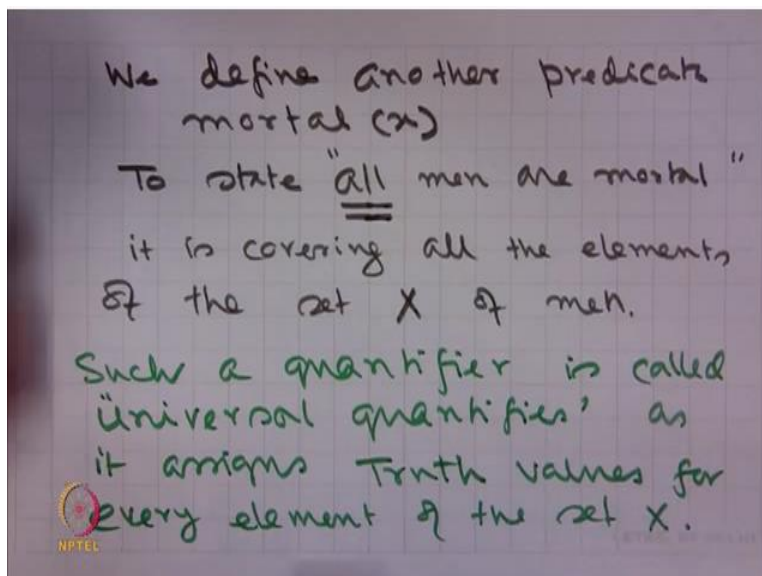 We define another predicate
mortal (x)
To state "all men are mortal"
it is covering all the elements
of the set X of men.
Such a quantifier is called
"universal quantifier" as
it assigns Truth values for
every element of the set X.
NPTEL